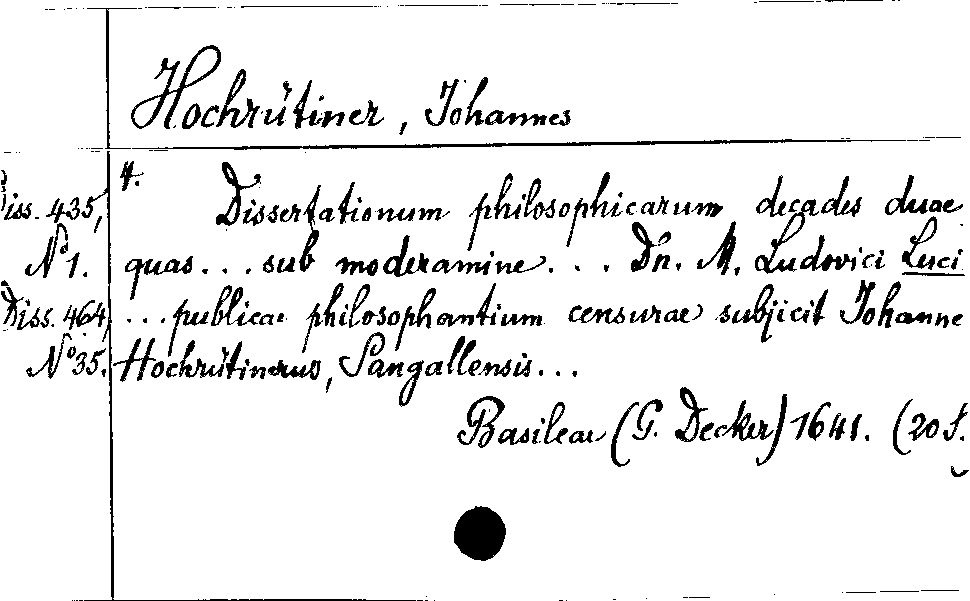 Hochrütiner, Johannes
4.
Diss. 435, Dissertationum philosophicarum decades duae
No 1. quas... sub moderamine... Dn. M. Ludovici Luci
Diss. 464, ...publicae philosophantium censurae subjicit Johanne
No 35. Hochrütinerus, Sangallensis...
Basileae (G. Decker) 1641. (20 S.